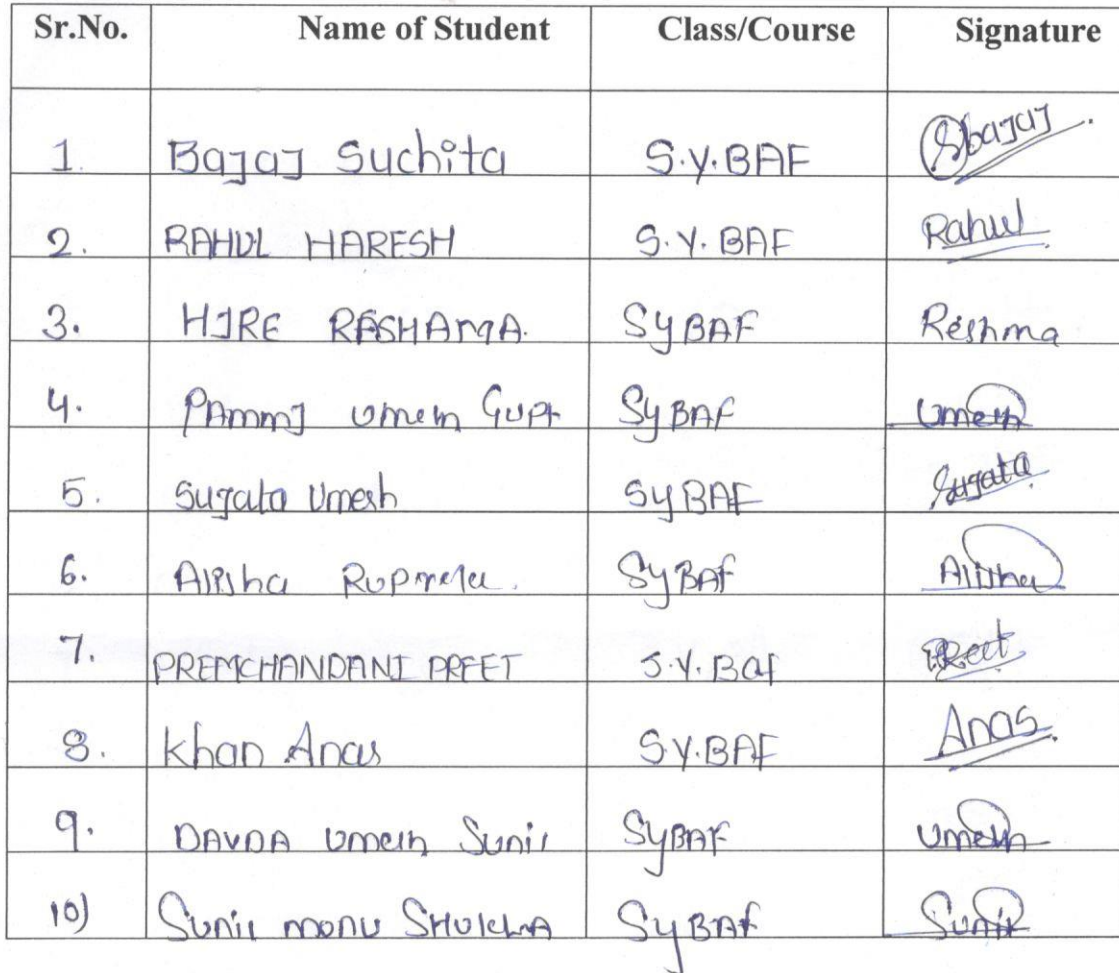 Sr.No. Name of Student Class/Course Signature
1. Bajaj Suchita S.Y.BAF Sbajaj
2. RAHUL HARESH S.Y.BAF Rahul
3. HIRE RASHAMA. SYBAF Reshma
4. PAmmI Umesh Gupt SYBAF Umesh
5. Sujata Umesh SYBAF Sujata
6. Alisha SYBAF Alisha
7. PREMCHANDANI PREET S.Y.Baf Preet
8. Khan Anas S.Y.BAF Anas
9. DAVDA Umesh Sunil SYBAF Umesh
10) Sunil monu SHUKLA SYBAF Sunil